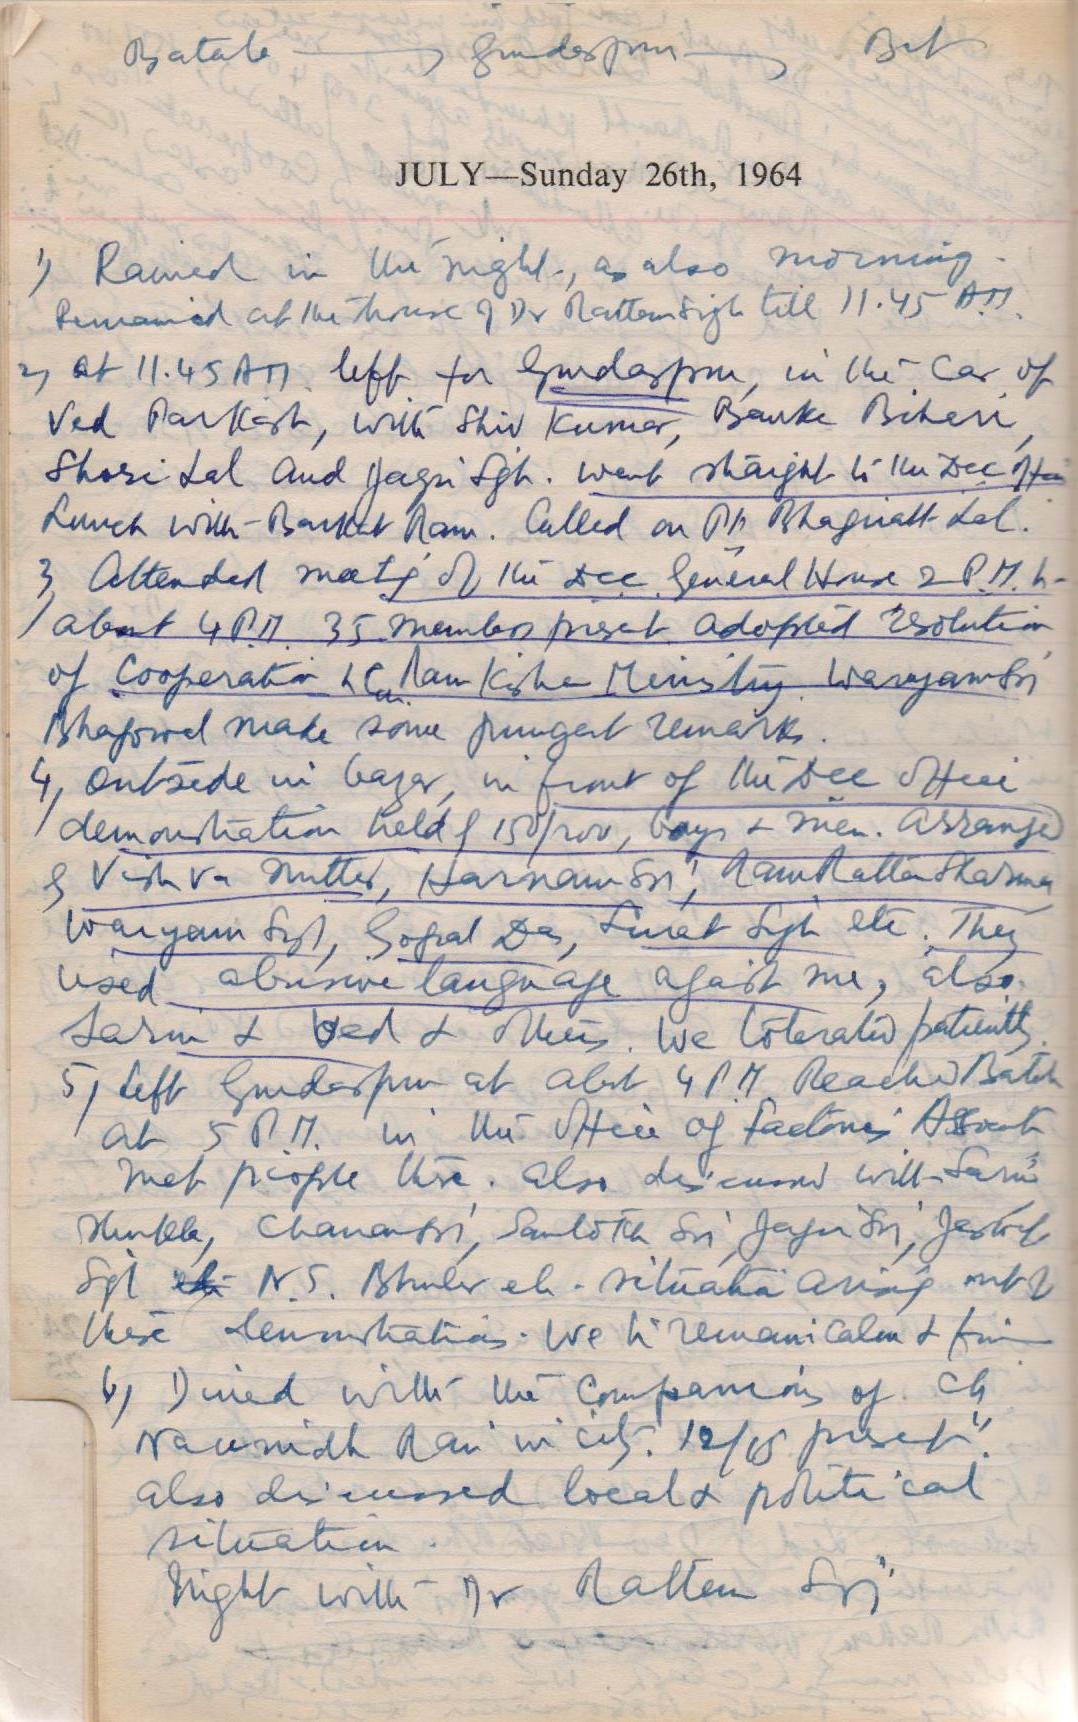 Batala → Gurdaspur → Bat
JULY—Sunday 26th, 1964
1) Rained in the night, as also morning.
Remained at the house of Dr Rattan Sigh till 11.45 AM.
2) at 11.45 AM left for Gurdaspur, in the Car of
Ved Parkash, with Shiv Kumar, Banke Bihari,
Shori Lal and Jagir Sgh. went straight to the Dcc office
Lunch with Barkat Ram. Called on Pt Bhagwatt Lal.
3, Attended meetig of the Dcc General House 2 P.M. to
about 4 P.M. 35 members preset adopted resolution
of Cooperation to Ram Kishen Ministry Waryam Sri
make some pungent remarks.
4, outside in bazar, in front of the Dcc office
demonstration held of 150/200, boys & men. arranged
by Vishva Mitter, Harnam Sri, Ram Rattan Sharma
Waryam Sgh, Gopal Das, Surat Sgh etc. They
used abusive language agaist me, also
Sarin & Ved & others. We tolerated patiently.
5, Left Gurdaspur at abot 4 P.M Reached Batala
at 5 P.M. in the office of Factories
met people there. also discussed with Sarin
Chanan Sri, Santokh Sri, Jagir Sri,
Sgh N.S. etc. situation arising out of
these demonstrations. We to remain calm & firm
6) Dined with the Companions of Ch
Naunidh Rai in city. 12/15 present.
also discussed local & political
situation.
Night with Dr Rattan Sri